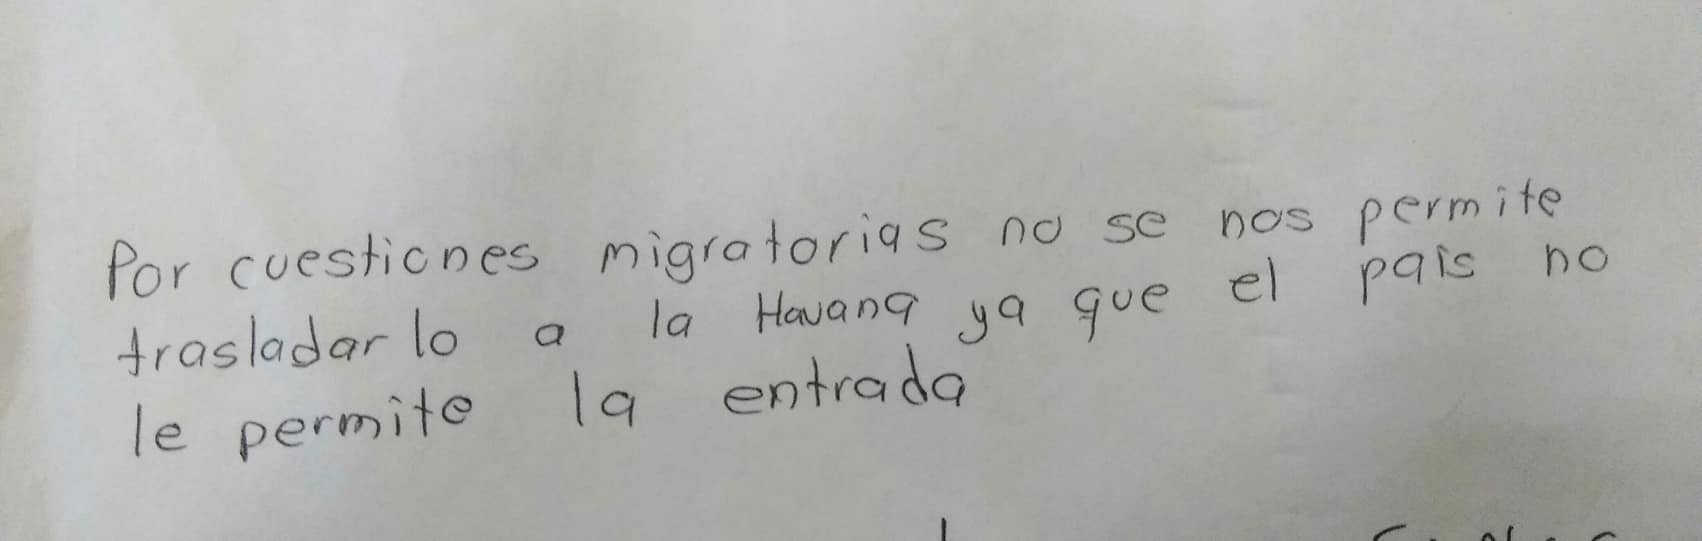 Por cuestiones migratorias no se nos permite
trasladarlo a la Havana ya que el pais no
le permite la entrada